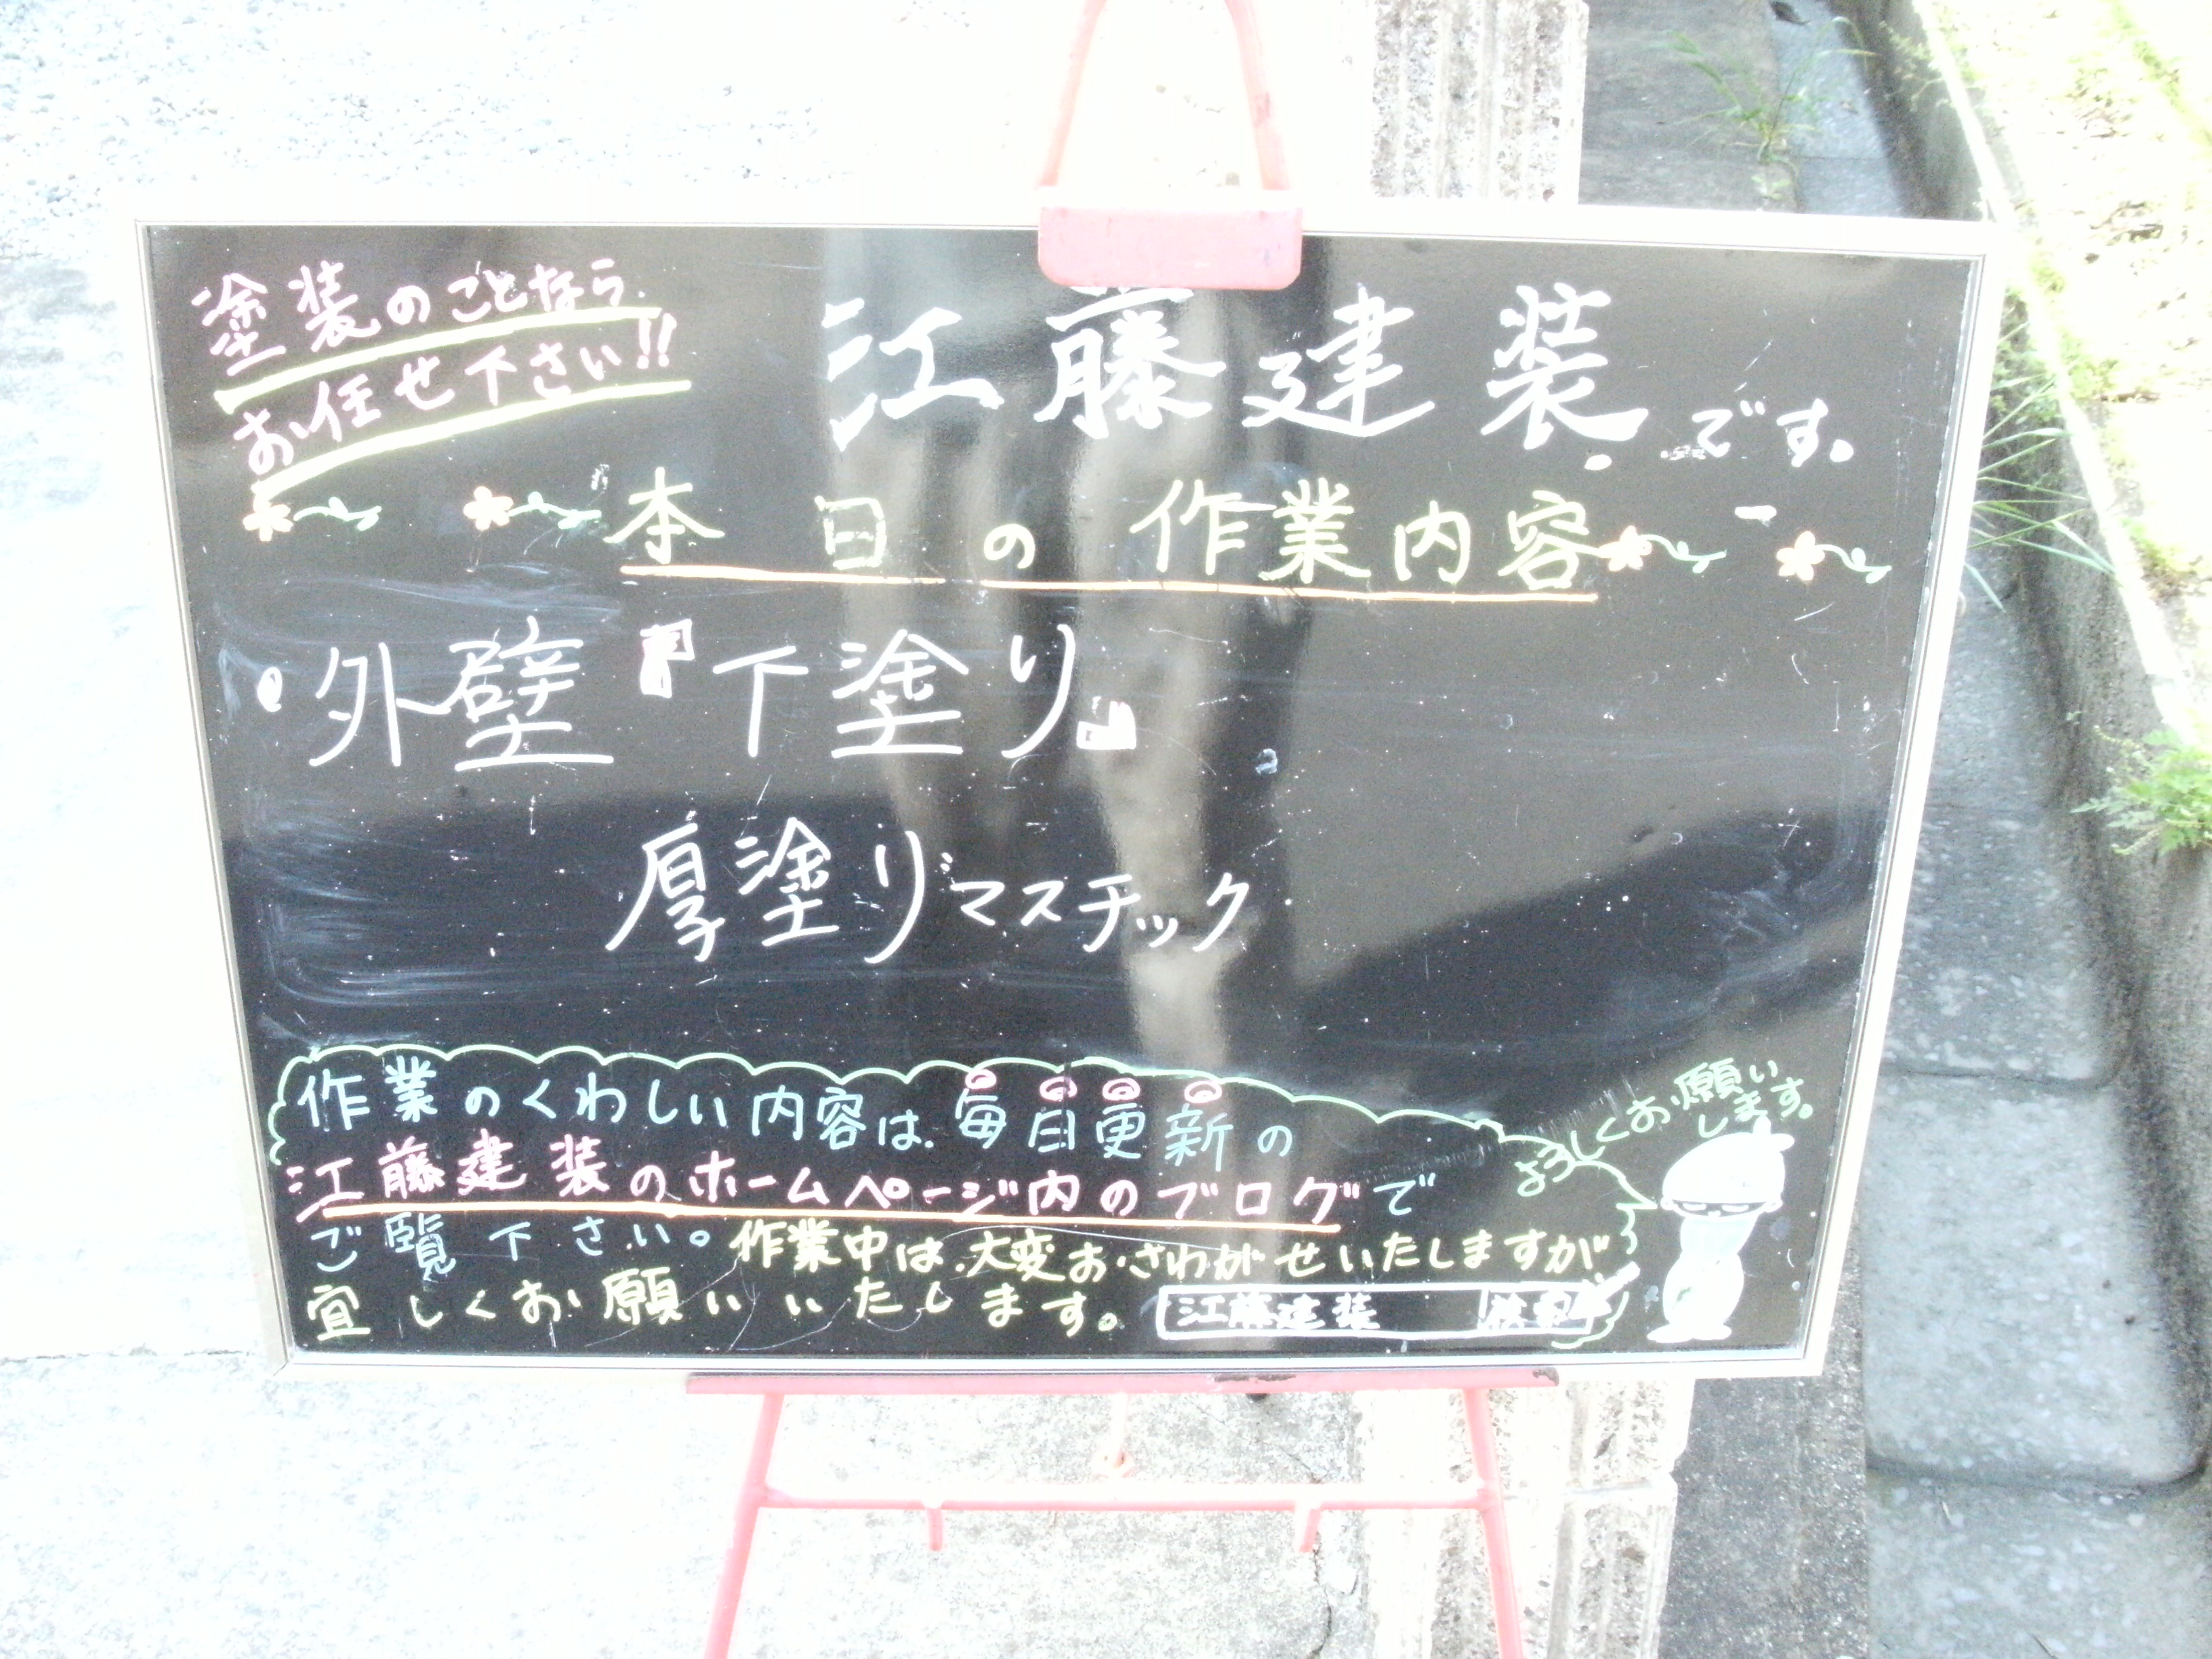 塗装のことなら
お任せ下さい!!
江藤建装です。
本日の作業内容
・外壁『下塗り』
厚塗りマスチック
作業のくわしい内容は、毎日更新の
江藤建装のホームページ内のブログで
ご覧下さい。作業中は、大変おさわがせいたしますが
宜しくお願いいたします。
江藤建装 検索
よろしくお願い
します。